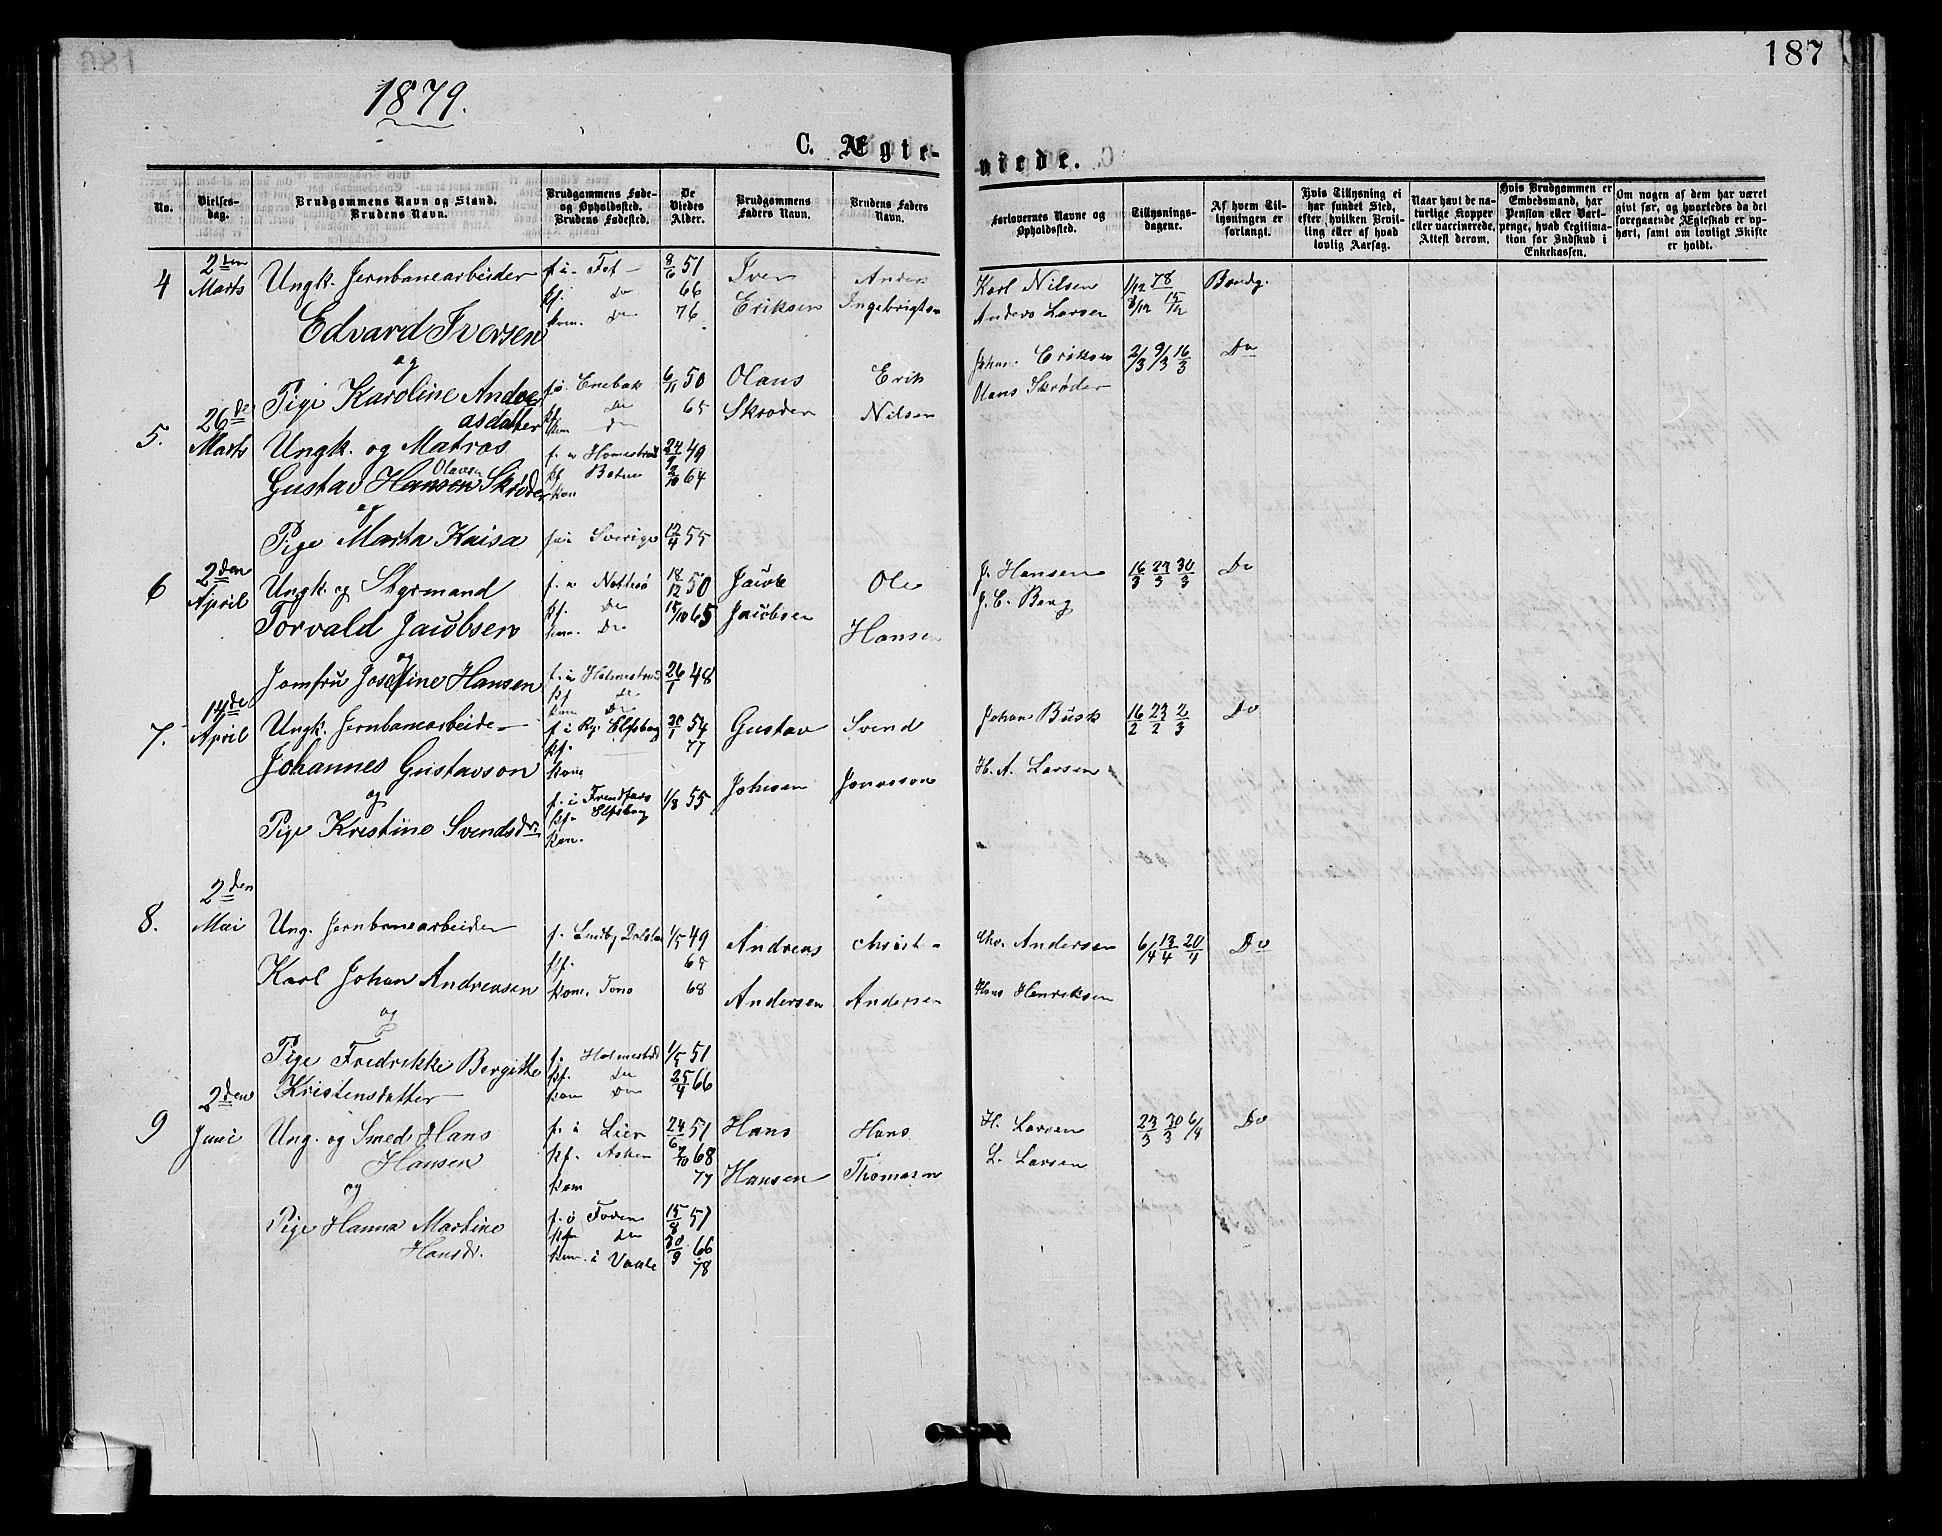 187
1879.
C. Ægteviede.
No.
Vielsesdag.
Brudgommens Navn og Stand. Brudens Navn.
Brudgommens Føde- og Opholdssted. Brudens Fødested.
De Viedes Alder.
Brudgommens Faders Navn.
Brudens Faders Navn.
Forlovernes Navne og Opholdssted.
Tillysningsdagene.
Af hvem Tillysningen er forlangt.
Hvis Tillysning ei har fundet Sted, efter hvilken Bevilling eller af hvad lovlig Aarsag.
Naar havt de naturlige Kopper eller vaccinerede, Attest derom.
Hvis Brudgommen er Embedsmand, har Pension eller Vartpenge, hvad Legitimation for Indskud i Enkekassen.
Om nogen af dem har været givt før, og hvorledes da det foregaaende Ægteskab er ophørt, samt om lovligt Skifte er holdt.
4 2den Marts Ungk. Jernbanearbeider f. i. Fet 8/6 51 Iver Anders Karl Nilsen 1/12 78 Brudg.
kf. do 66 Eriksen Ingebrigtsen Anders Larsen 8/12 15/12
Edvard Iversen kom. do 76
og Johan Eriksen 2/3 9/3 16/3 Do
Pige Karoline Andreasdatter f. i Enebak 6/11 50 Olaus Erik Olaus Skrøder
kf. do 65 Skrøder Nilsen
kom do
5. 26de Marts Ungk. og Matros f. i Homestrand 24/9 49
Gustav Hansen Olavsen Skrøder kf Botne 2/10 64
kon
og
Pige Marta Kaisa f. i Sverige 12/4 55
6 2den April Ungk. og Styrmand f. i Nøtterø 18/12 50 Jacob Ole J. Hansen 16/3 23/3 30/3 Do
Torvald Jacobsen kf. Do 15/10 65 Jacobsen Hansen J. C. Berg
kom. Do
og
Jomfru Josefine Hansen f. i Holmestrand 26/1 48
kf do
kom Do
7. 14de April Ungk. Jernbanearbeide f. i Ry. Elfsborg 20/1 54 Gustav Svend Johan Busk 16/2 23/2 2/3 Do
kf. 77
Johannes Gustavson kom Johnsen Jonasson H. A. Larsen
og
f. i Elfsborg 1/8 55
Pige Kristine Svendsdr. kf.
kon.
8. 2den Mai Ung. Jernbanearbeider f. 1/5 49 Andreas Christ Chr. Andersen 6/4 13/4 20/4 Do
kf. 65
Karl Johan Andreasen kom. Tono 68 Andersen Andersen Hans Henriksen
og
Pige Fredrikke Bergitte f. Holmestrd 1/5 51
Kristensdatter kf. do 25/4 66
kom do
9 2den Juni Ung. og Smed Hans f. i Lier 24/6 51 Hans Hans H. Larsen 23/3 30/3 6/4 Do
Hansen kf. Asker 2/10 68 Hansen Thomasen L. Larsen
kom 77
og
Pige Hanna Martine f. i 15/8 57
Hansdr. kf do 30/9 66
kom. i Vaale 78